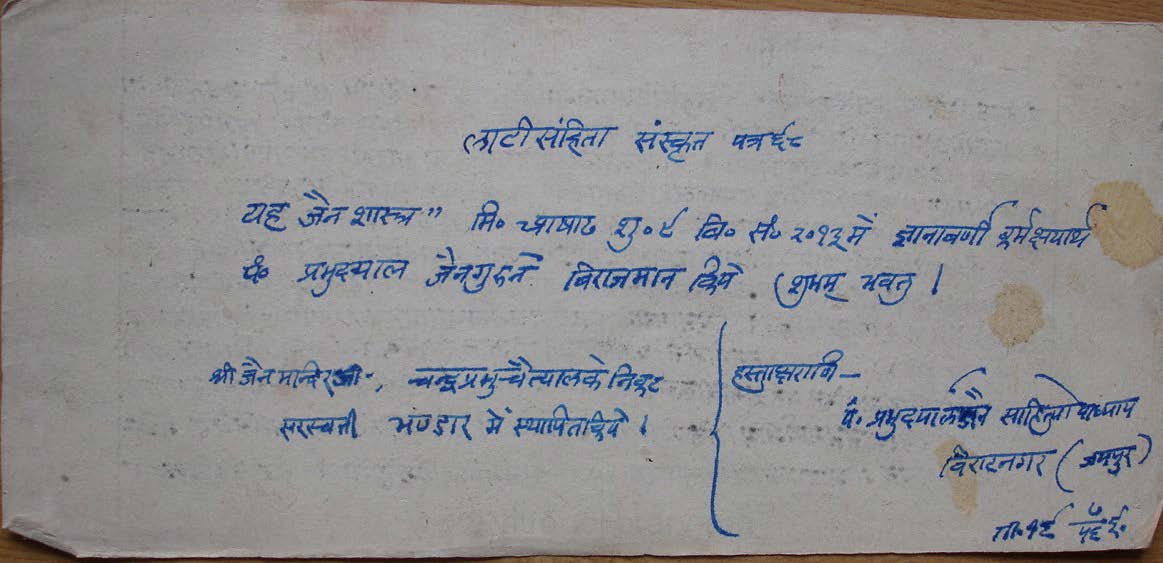 लाटी संहिता संस्कृत पत्र ६८
यह जैन शास्त्र" मि० आषाढ शु० ९ वि० सं० २०१३ में ज्ञानावर्णी कर्मक्षयार्थ
पं० प्रभुदयाल जैनगुरुने विराजमान किये (शुभम् भवतु ।
श्री जैन मन्दिर जी, चन्द्रप्रभु चैत्यालके निकट
सरस्वती भण्डार में स्थापित किये ।
हस्ताक्षराणि —
पं० प्रभुदयाल जैन साहित्योपाध्याय
विराटनगर (जयपुर)
ता० १६ ७/५६ ई.